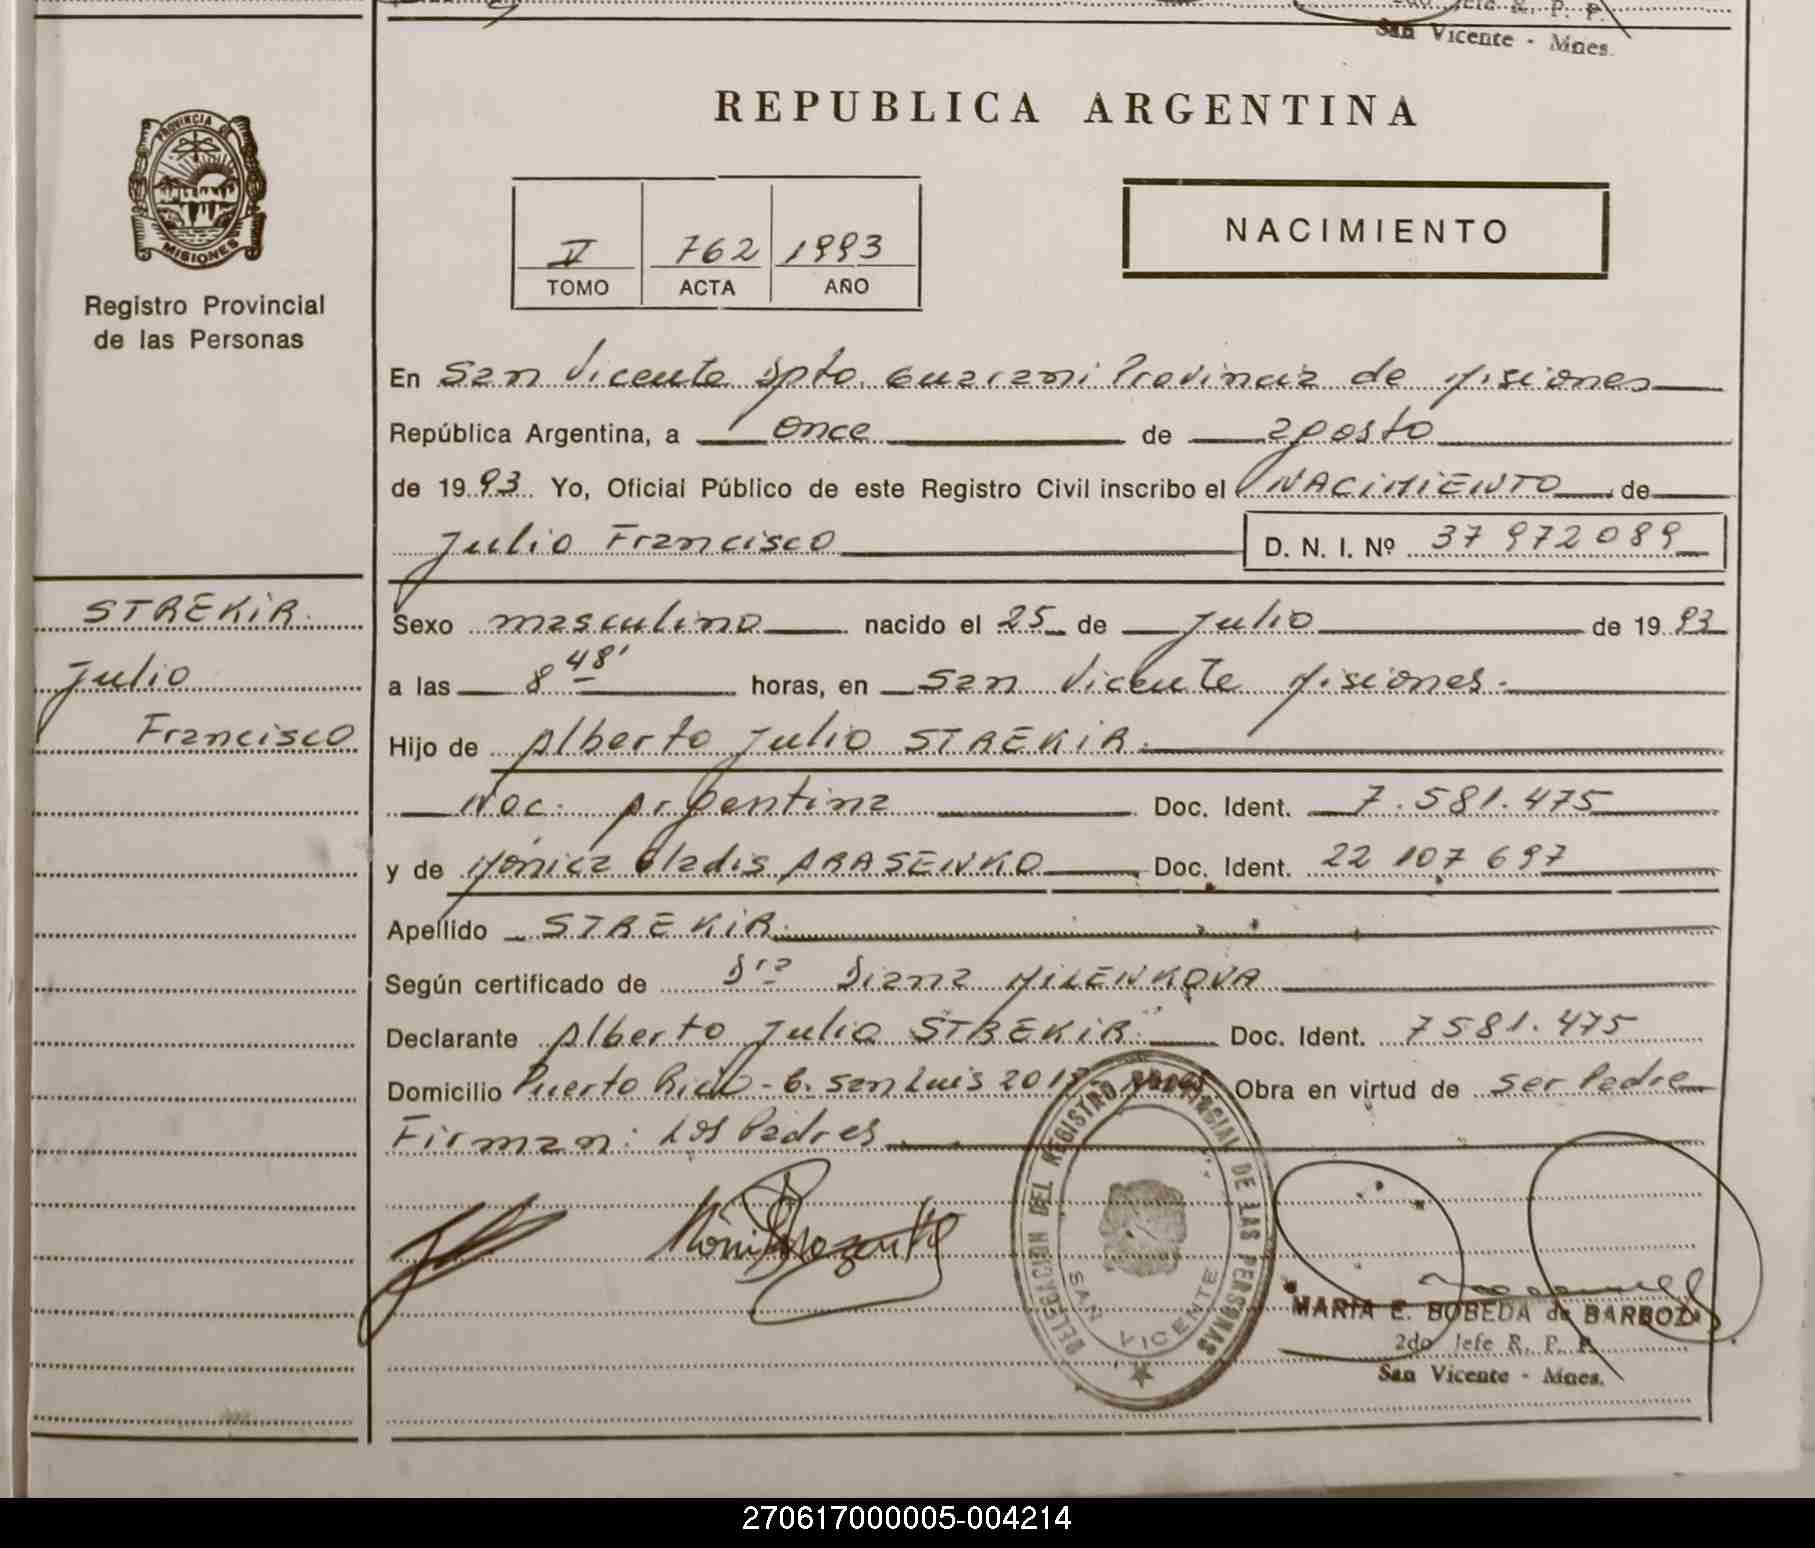 2do Jefe R. P. P.
San Vicente - Mnes.
REPUBLICA ARGENTINA
PROVINCIA DE
MISIONES
Registro Provincial
de las Personas
V 762 1993
TOMO ACTA AÑO
NACIMIENTO
En San Vicente Dpto. Guaraní Provincia de Misiones
República Argentina, a once de agosto
de 1993. Yo, Oficial Público de este Registro Civil inscribo el NACIMIENTO de
Julio Francisco D. N. I. Nº 37 972 089
STREKIR.
Julio
Francisco
Sexo masculino nacido el 25 de Julio de 1993
a las 8 48' horas, en San Vicente Misiones.
Hijo de Alberto Julio STREKIR.
Nac. Argentina Doc. Ident. 7.581.475
y de Mónica Gladis ARASENKO Doc. Ident. 22 107 697
Apellido STREKIR.
Según certificado de Dra Diana MILENKOVA
Declarante Alberto Julio STREKIR. Doc. Ident. 7581.475
Domicilio Puerto Rico - C. San Luis Obra en virtud de ser Padre
Firman: Los Padres
DELEGACION DEL REGISTRO PROVINCIAL DE LAS PERSONAS
SAN VICENTE
MARIA E. BOBEDA de BARBOZA
2do Jefe R. P. P.
San Vicente - Mnes.
270617000005-004214